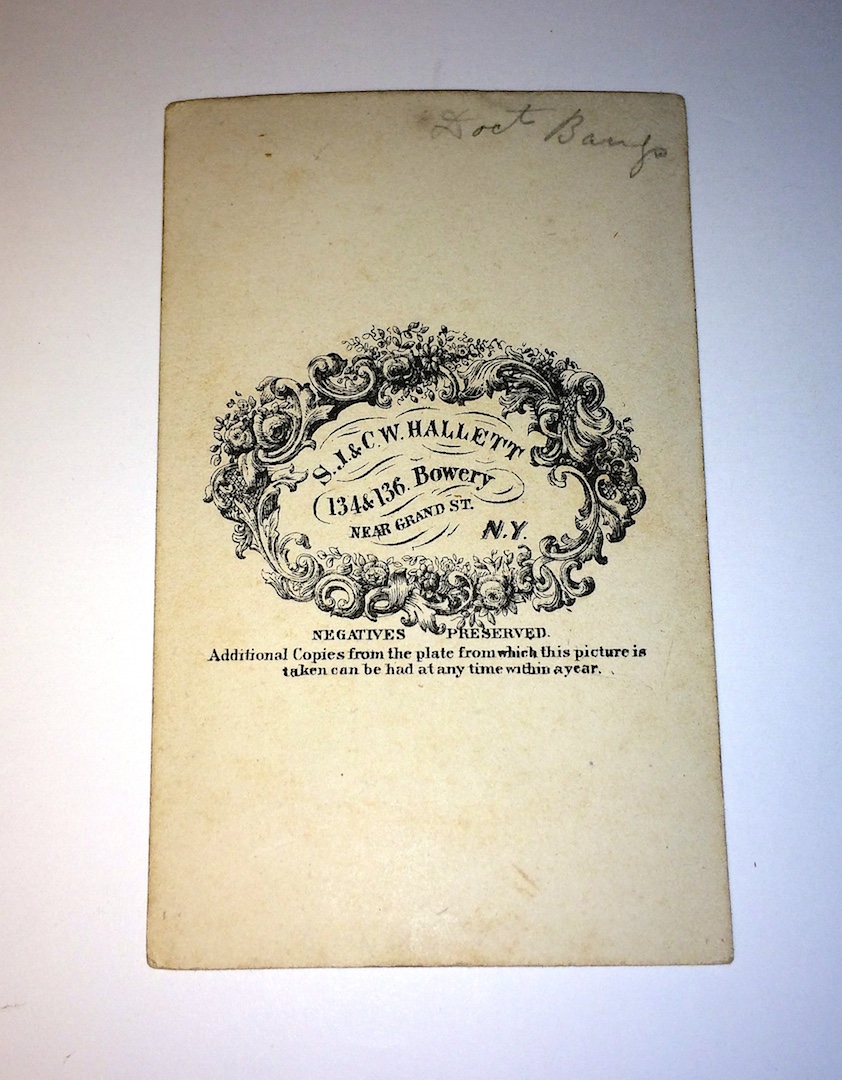 Doct Bangs
S. J. & C. W. HALLETT
134 & 136. Bowery
NEAR GRAND ST. N.Y.
NEGATIVES PRESERVED.
Additional Copies from the plate from which this picture is
taken can be had at any time within a year.